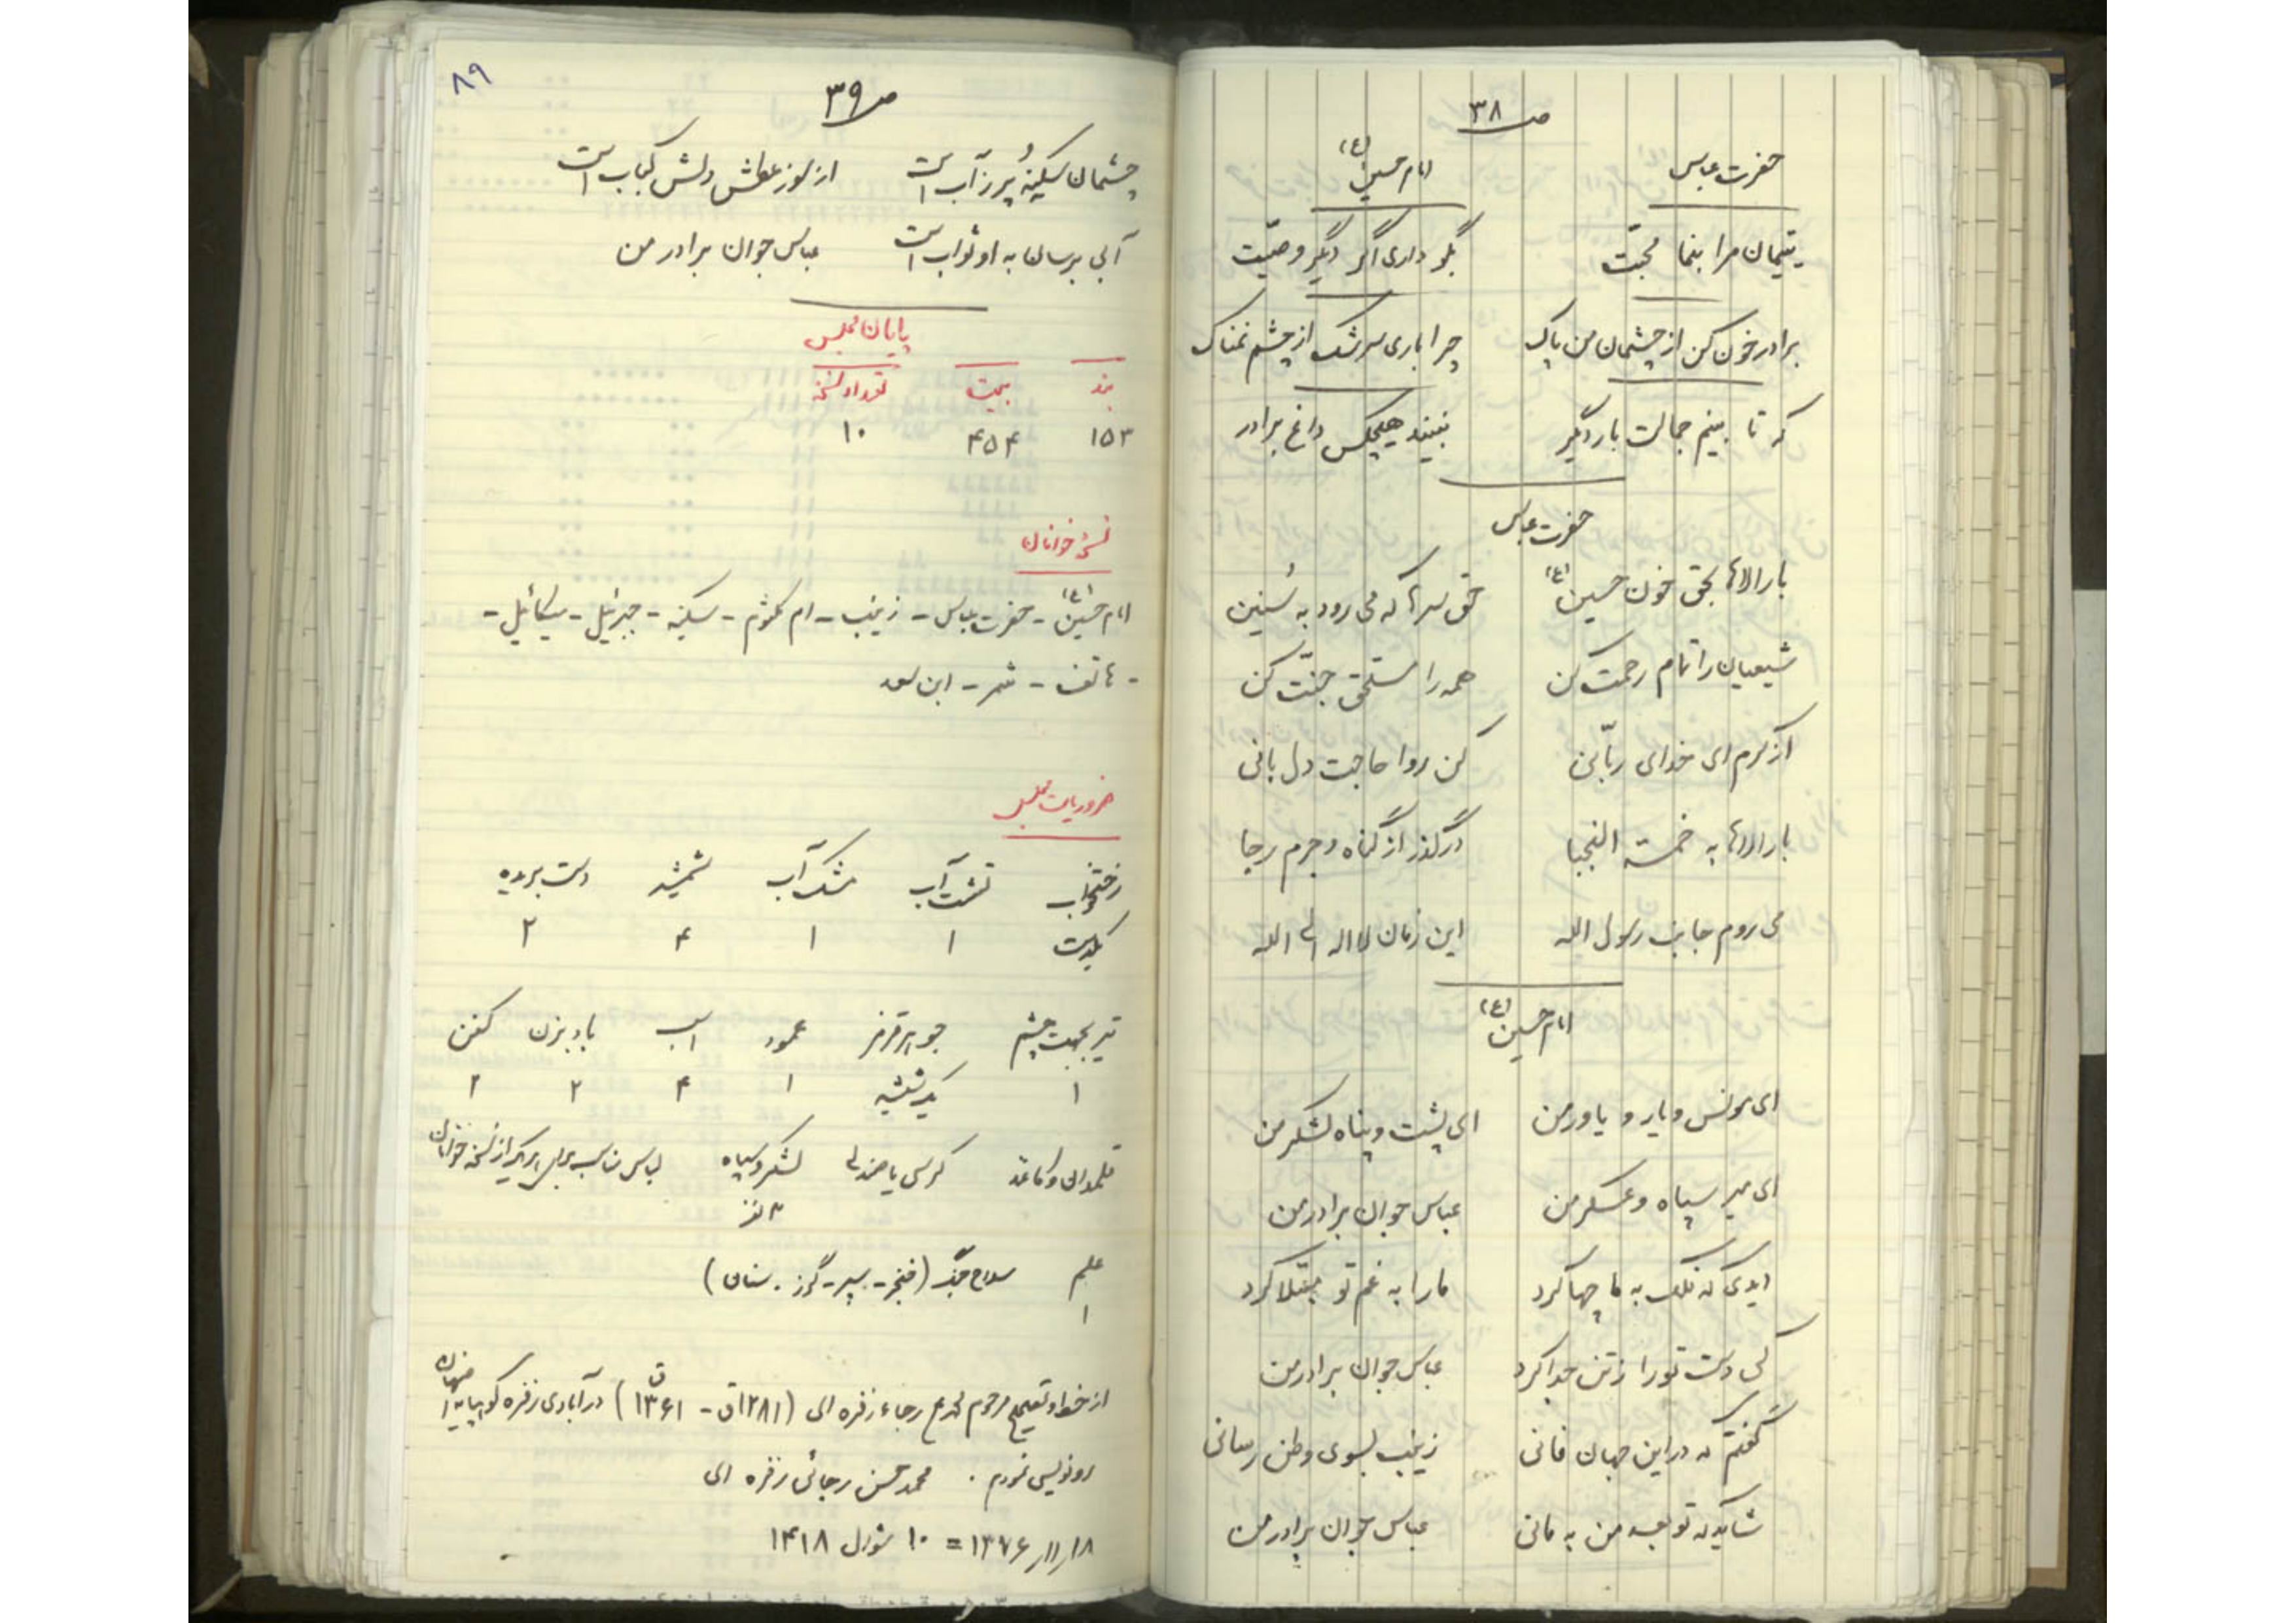 ص ۳۸
حضرت عباس امام حسین (ع)
یتیمان مرا بنما محبّت بگو داری اگر دیگر وصیّت
برادر خون کن از چشمان من پاک چرا باری سرشک از چشم نمناک
که تا بینم جمالت بار دیگر نبیند هیچکس داغ برادر
حضرت عباس
بارالاها بحق خون حسین (ع) حق سرها که می رود به سُنین
شیعیان را تمام رحمت کن همه را مستحق جنّت کن
از کرم ای خدای ربّانی کن روا حاجت دل بانی
بارالاها به خمسة النجبا درگذر از گناه و جرم رجا
می روم جانب رسول الله این زمان لا اله الی الله
امام حسین (ع)
ای مونس و یار و یاور من ای پشت و پناه لشکر من
ای میر سپاه و عسکر من عباس جوان برادر من
دیدی که فلک به ما چها کرد ما را به غم تو مبتلا کرد
کی دست تو را ز تن جدا کرد عباس جوان برادر من
گفتم که در این جهان فانی زینب بسوی وطن رسانی
شاید که تو بعد من به مانی عباس جوان برادر من
۸۹
ص ۳۹
چشمان سکینه پُر ز آب است از سوز عطش دلش کباب است
آبی برسان به او ثواب است عباس جوان برادر من
پایان مجلس
بند بیت تعداد نسخه
۱۵۳ ۴۵۴ ۱۰
نسخه خوانان
امام حسین (ع) - حضرت عباس - زینب - ام کلثوم - سکینه - جبرئیل - میکائیل -
- هاتف - شمر - ابن سعد
ضروریات مجلس
رختخواب تشت آب مشک آب شمشیر دست بریده
یکدست ۱ ۱ ۴ ۲
تیر بجهت چشم جوهر قرمز عمود اسب بادبزن کفن
۱ یک شیشه ۱ ۴ ۲ ۲
قلمدان و کاغذ کرسی یا صندلی لشکر و سپاه لباس مناسب برای هریک از نسخه خوانان
۳ نفر
علم سلاح جنگ (خنجر - سپر - گرز - سنان)
۱
از خط و تصحیح مرحوم رجاء زفره ای (۱۲۸۱ق - ۱۳۶۱ق) در آبادی زفره کوهپایه اصفهان
رونویسی نمودم . محمد حسن رجائی زفره ای
۱۸ر۱۱ر۱۳۷۶ = ۱۰ شوال ۱۴۱۸